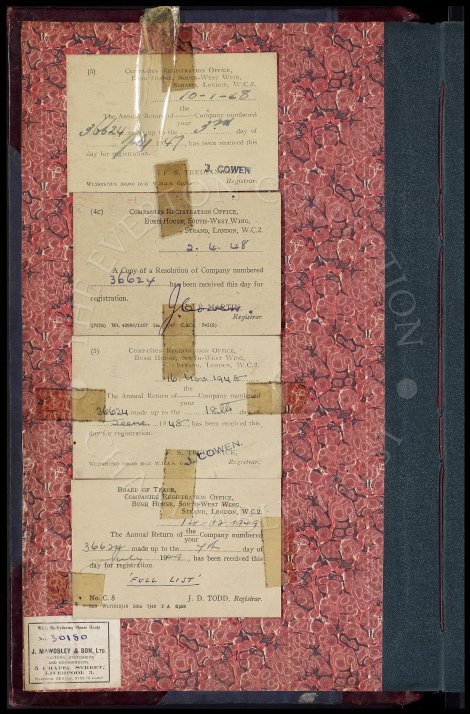 [5]
COMPANIES REGISTRATION OFFICE,
BUSH HOUSE, SOUTH-WEST WING,
STRAND, LONDON, W.C.2.
10-1-48
the
The Annual Return of Company numbered
your
36624 made up to the 3rd day of
July 1947, has been received this
day for registration.
J. COWEN
Registrar.
(4c)
COMPANIES REGISTRATION OFFICE,
BUSH HOUSE, SOUTH-WEST WING,
STRAND, LONDON, W.C.2.
2. 4. 48
A Copy of a Resolution of Company numbered
36624 has been received this day for
registration.
MARTIN
Registrar
(5)
COMPANIES REGISTRATION OFFICE,
BUSH HOUSE, SOUTH-WEST WING,
STRAND, LONDON, W.C.2.
16 1948
the
The Annual Return of Company numbered
your
36624 made up to the 18th day of
1948, has been received this
day for registration.
J. COWEN.
Registrar.
BOARD OF TRADE,
COMPANIES REGISTRATION OFFICE,
BUSH HOUSE, SOUTH-WEST WING,
STRAND, LONDON, W.C.2.
14-12-1949
the
The Annual Return of Company numbered
your
36624 made up to the 7th day of
July 1949, has been received this
day for registration.
FULL LIST
No. C. 5 J. D. TODD, Registrar.
When Re-Ordering Please Quote
No. 30180
J. MAWDSLEY & SON, LTD.
PRINTERS, STATIONERS
AND BOOKBINDERS
5 CHAPEL STREET,
LIVERPOOL 3.
THE EVERTON COLLECTION